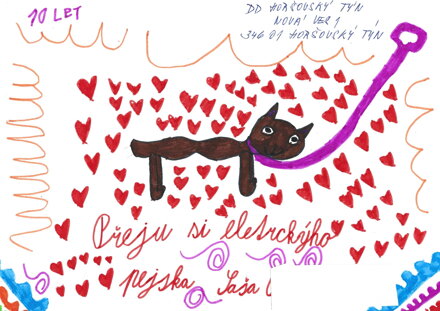 10 LET
DD HORŠOVSKÝ TÝN
NOVÁ VES 1
346 01 HORŠOVSKÝ TÝN
Přeju si eletrckýho
pejska Saša